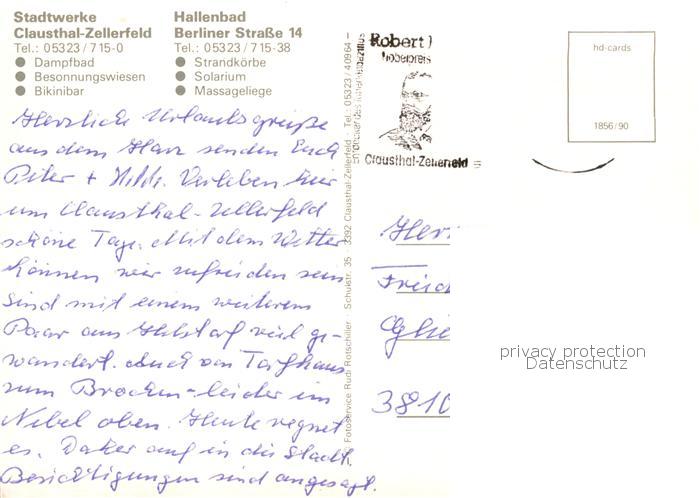 Stadtwerke
Clausthal-Zellerfeld
Tel.: 05323/715-0
Dampfbad
Besonnungswiesen
Bikinibar
Hallenbad
Berliner Straße 14
Tel.: 05323/715-38
Strandkörbe
Solarium
Massageliege
Herzliche Urlaubsgrüße
aus dem Harz senden Euch
Peter + Hildr. Verleben hier
um Clausthal-Zellerfeld
schöne Tage. Mit dem Wetter
können wir zufrieden sein
Sind mit einem weiteren
Paar aus viel ge-
wandert. Auch von Torfhaus
zum Brocken - leider im
Nebel oben. Heute regnet
es. Daher auf in die Stadt.
Besichtigungen sind angesagt.
Fotoservice Rudi Rotschiller · Schulstr. 35 3392 Clausthal-Zellerfeld · Tel.: 05323/40964
Robert
Clausthal-Zellerfeld
hd-cards
1856/90
Herr
3810
privacy protection
Datenschutz